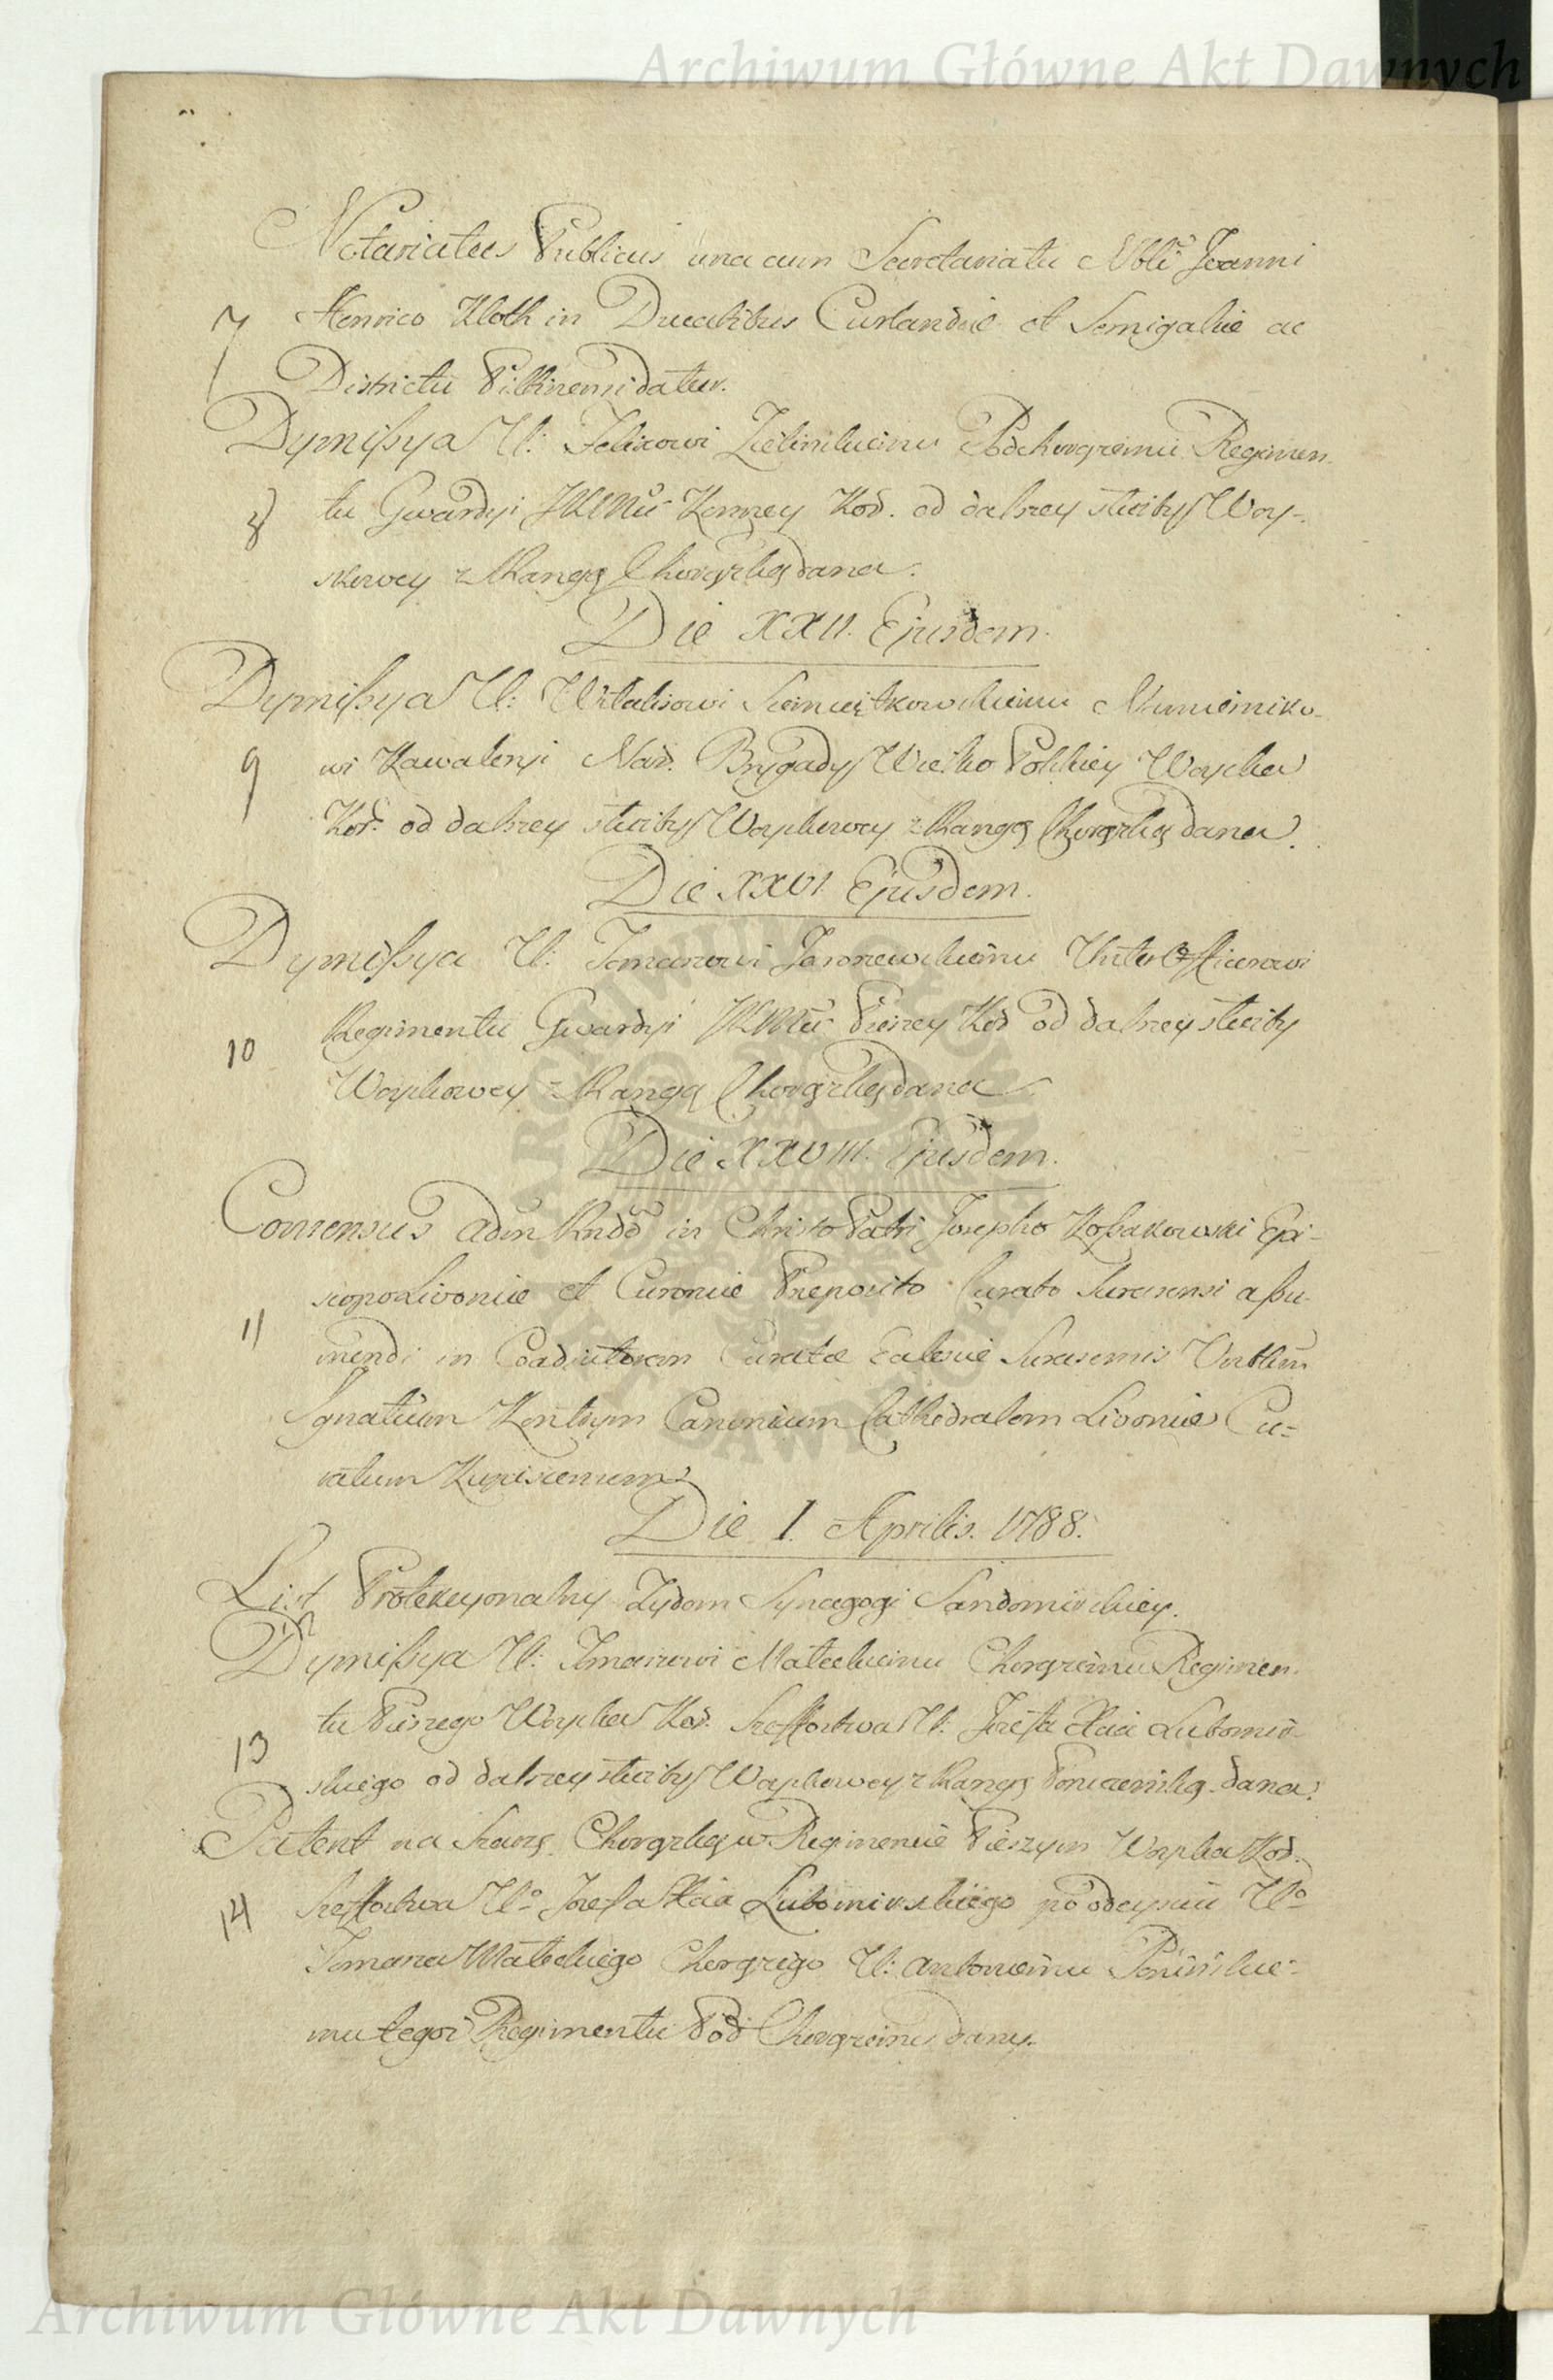 Archiwum Główne Akt Dawnych
Notariatus Publicus una cum Secretariatu Nbli Joanni
7 Henrico Kloth in Ducatibus Curlandiæ et Semigaliæ ac
Districtu Piltinensi datur.
Dymißya U: Felixowi Zielinskiemu Podchorążemu Regimen-
8 tu Gwardyi JKMci Konney Kor. od dalszey służby Woy-
skowey z Rangą Chorążtą dana.
Die XXII. Ejusdem.
Dymißya U: Witalisowi Siemiątkowskiemu Namiesniko-
9 wi Kawaleryi Nar. Brygady Wielko Polskiey Woyska
Kor. od dalszey służby Woyskowey z Rangą Chorążtą dana.
Die XXVI. Ejusdem.
Dymißya U: Tomaszowi Jaroszewskiemu Unter Officerowi
10 Regimentu Gwardyi JKMci Pieszey Kor od dalszey służby
Woyskowey z Rangą Chorążtą dana
Die XXVIII. Ejusdem.
Consensus Adm Rndo in Christo Patri Josepho Koßakowski Epi-
scopo Livoniæ et Curoniæ Præposito Curato Surasensi aßu-
11 mendi in Coadjutorem Curatæ Ecclesiæ Surasensis Vnrblem
Ignatium Kontrym Canonicum Cathedralem Livoniæ Cu-
ratum
Die 1. Aprilis. 1788.
List Protekcyonalny Zydom Synagogi Sandomirskiey.
12
Dymißya U: Tomaszowi Małeckiemu Chorążemu Regimen-
tu Pieszego Woyska Kor. Szeffostwa U: Jozefa Xcia Lubomir-
13 skiego od dalszey służby Woyskowey z Rangą Poruczniską dana.
Patent na Szarżę Chorążtą w Regimencie Pieszym Woyska Kor.
14 Szeffostwa Uo Jozefa Xcia Lubomirskiego po odeysciu Uo
Tomasza Małeckiego Chorążego U: Antoniemu Ponińskie-
mu tegoż Regimentu Pod Chorążemu dany.
Archiwum Główne Akt Dawnych